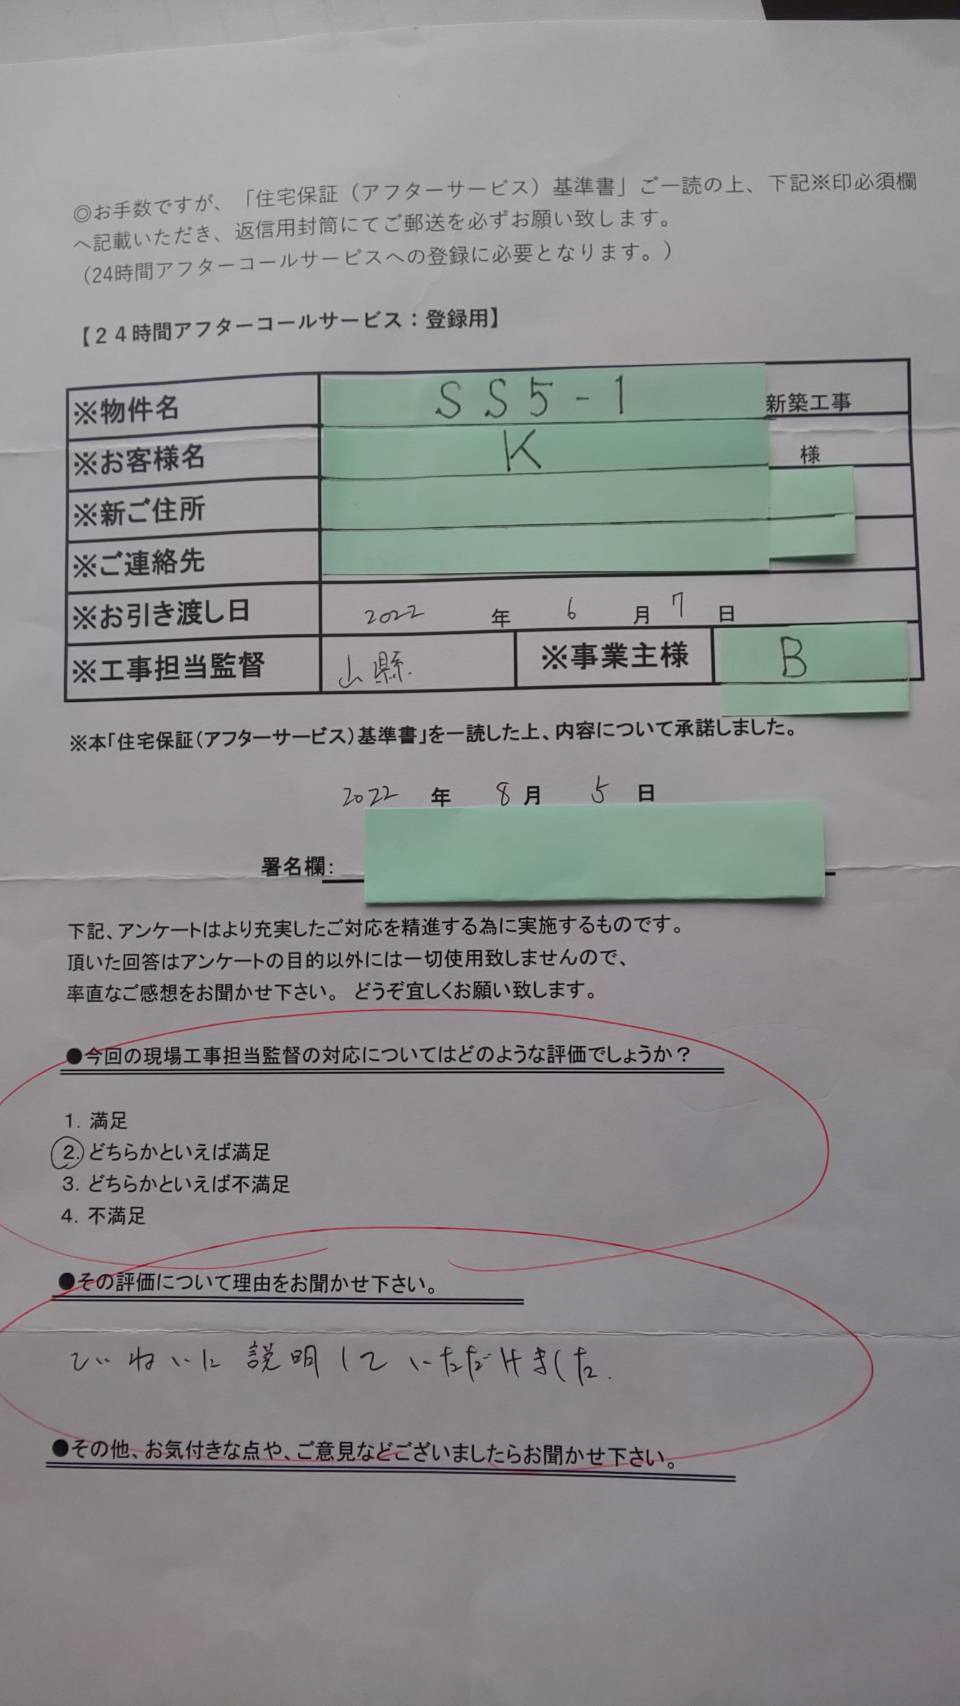 ◎お手数ですが、「住宅保証（アフターサービス）基準書」ご一読の上、下記※印必須欄
へ記載いただき、返信用封筒にてご郵送を必ずお願い致します。
（24時間アフターコールサービスへの登録に必要となります。）
【２４時間アフターコールサービス：登録用】
※物件名 SS5-1 新築工事
※お客様名 K 様
※新ご住所
※ご連絡先
※お引き渡し日 2022 年 6 月 7 日
※工事担当監督 山縣 ※事業主様 B
※本「住宅保証（アフターサービス）基準書」を一読した上、内容について承諾しました。
2022 年 8 月 5 日
署名欄：
下記、アンケートはより充実したご対応を精進する為に実施するものです。
頂いた回答はアンケートの目的以外には一切使用致しませんので、
率直なご感想をお聞かせ下さい。 どうぞ宜しくお願い致します。
●今回の現場工事担当監督の対応についてはどのような評価でしょうか？
1. 満足
2. どちらかといえば満足
3. どちらかといえば不満足
4. 不満足
●その評価について理由をお聞かせ下さい。
ていねいに説明していただけました.
●その他、お気付きな点や、ご意見などございましたらお聞かせ下さい。